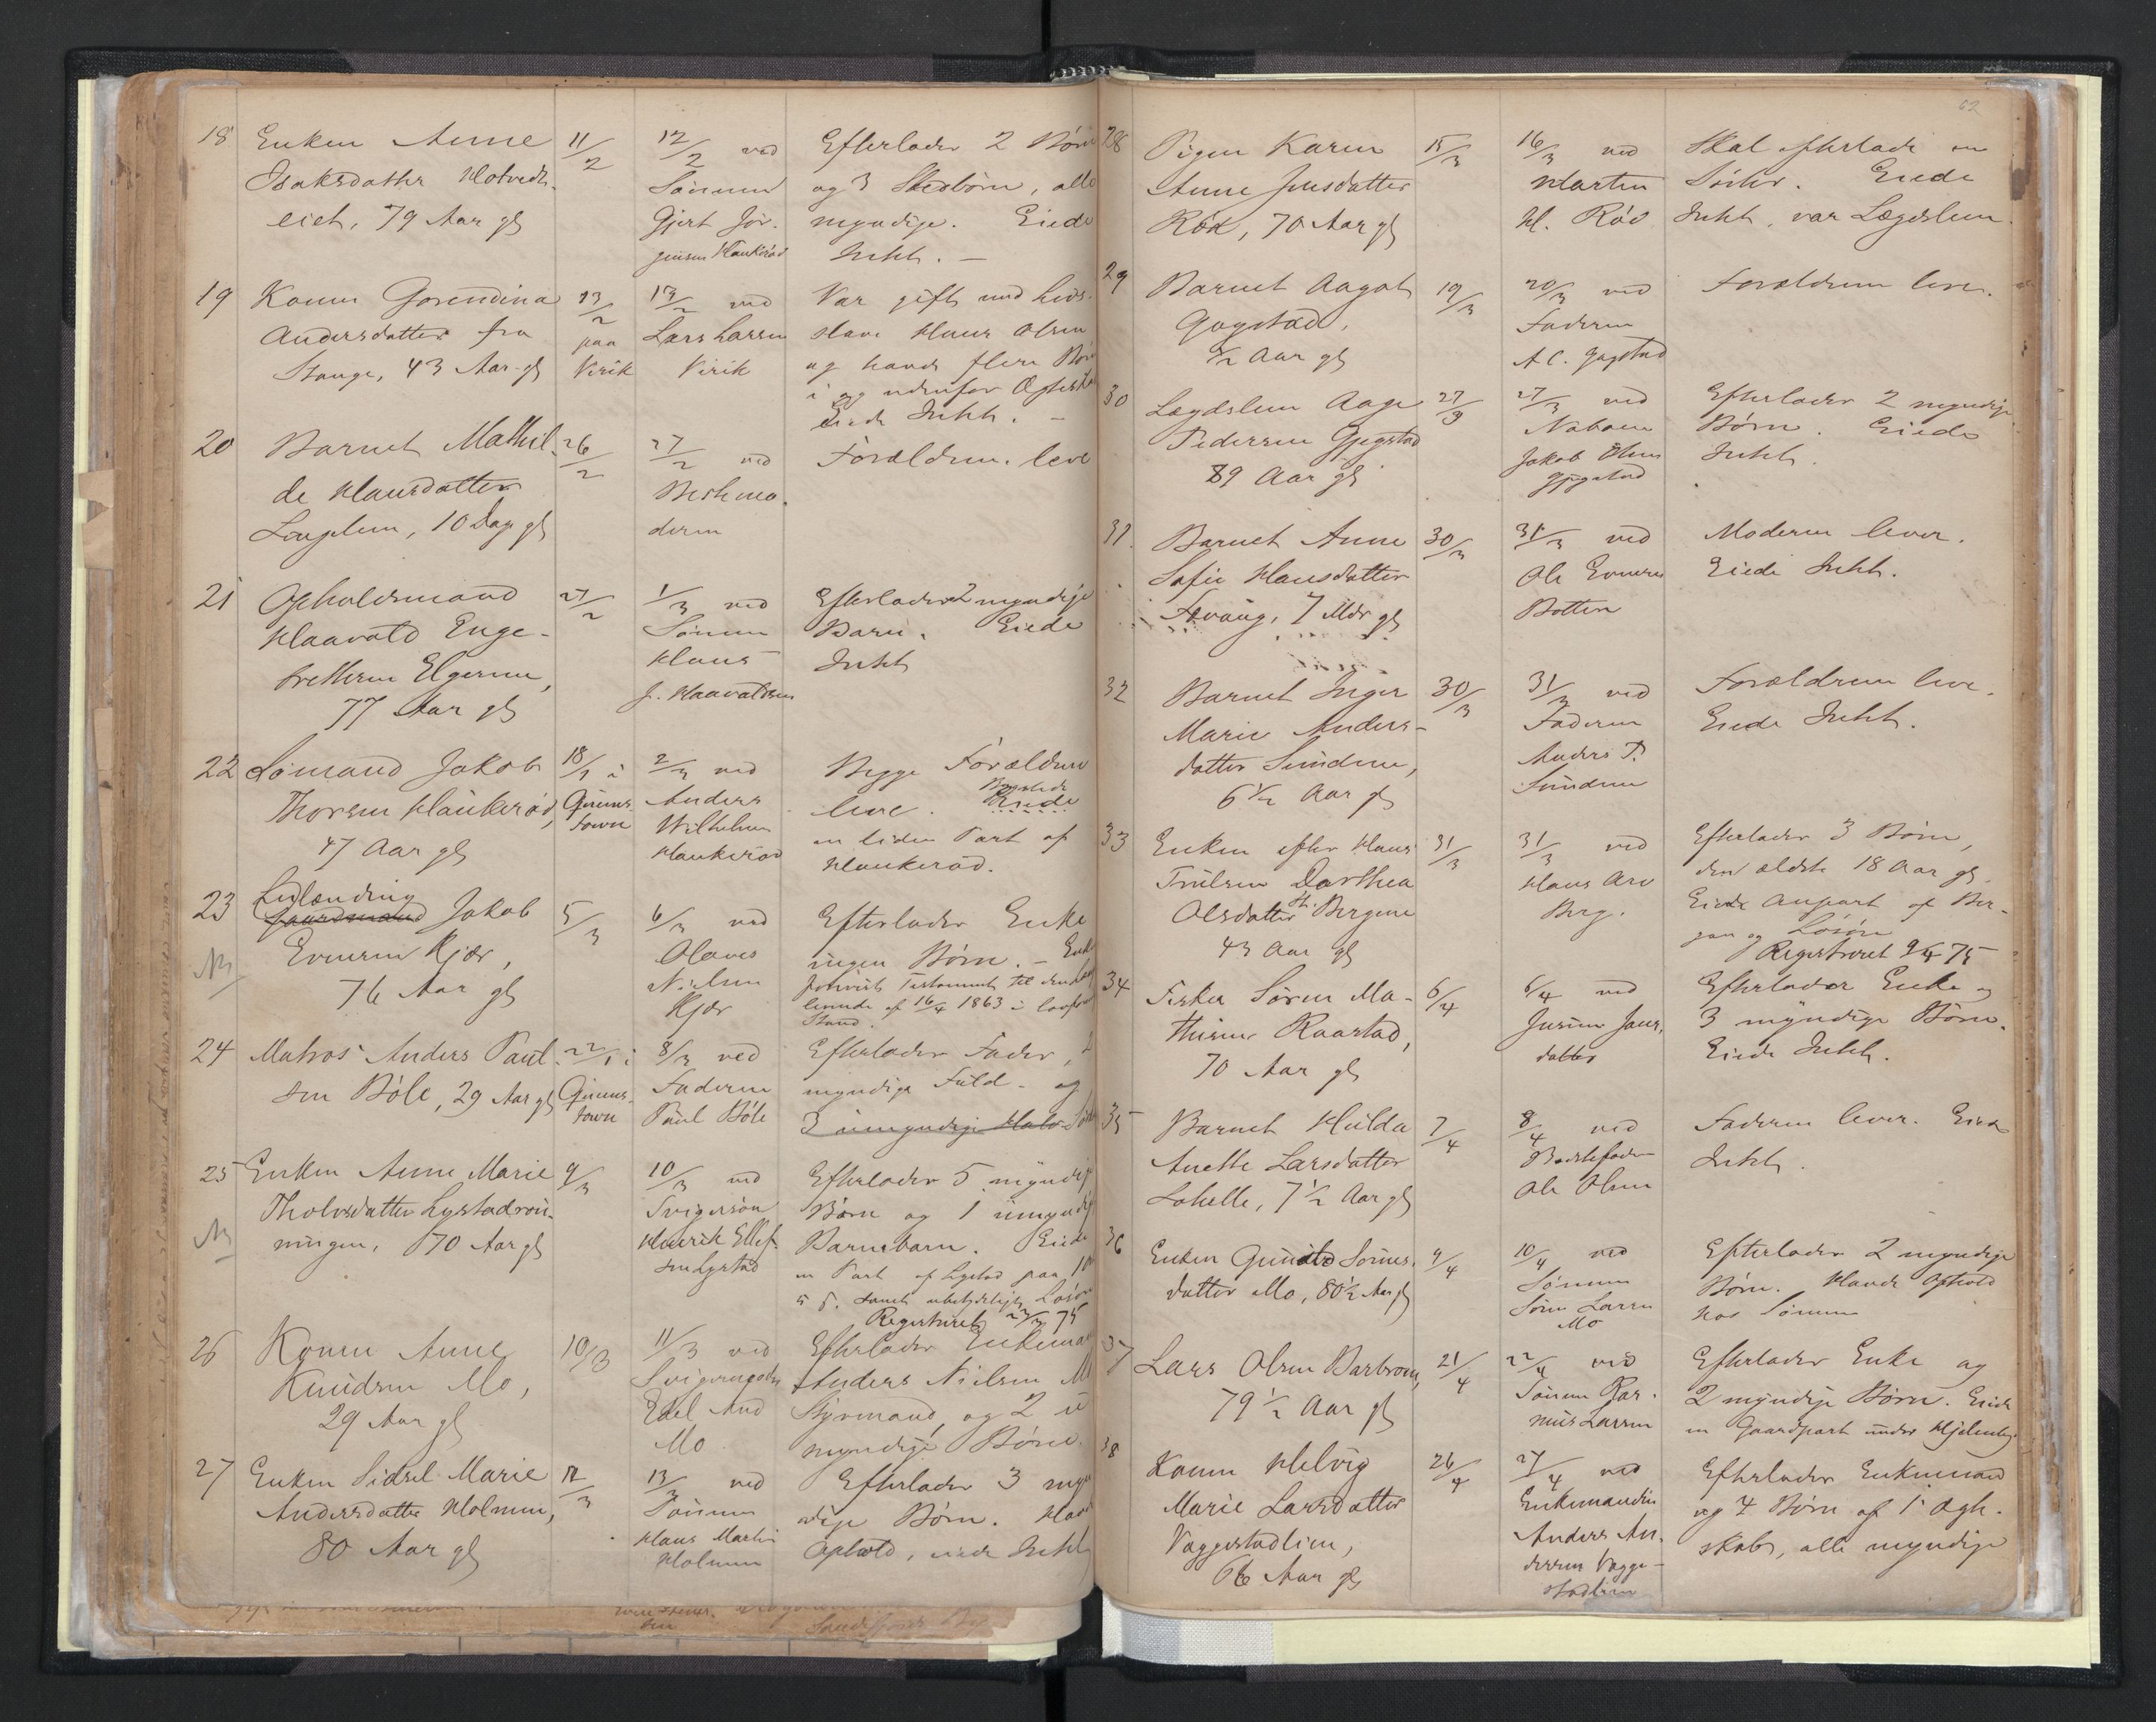 18 Enken Anne 11/2 12/2 ved Efterlader 2 Børn
Isaksdatter Hotvedt- Sønnen og 3 Stedbørn, alle
eiet, 79 Aar gl Gjert Jør- myndige. Eiede
gensen Haukerød Intet. —
19 Konen Gorendina 13/2 13/2 ved Var gift med Livs-
Andersdatter fra paa Lars Larsen slave Hans Olsen
Stange, 43 Aar gl Virik Virik og havde flere Børn
i og udenfor Ægteskab
Eiede Intet. —
20 Barnet Mathil- 26/2 27/2 ved Forældrene leve
de Hansdatter Bestemo-
Louplem, 10 Dage gl deren
21 Opholdsmand 27/2 1/3 ved Efterlader 2 myndige
Haavald Enge- Sønnen Børn. Eiede
brettsen Elgesem, Hans Intet
77 Aar gl J. Haavaldsen
22 Sømand Jakob 18/1 i 2/3 ved Begge Forældrene
Thorsen Haukerød, Quens- Anders leve. Eiede
47 Aar gl town Wilhelmsen en liden Part af
Haukerød Haukerød.
23 Indlænding
Gaardmand Jakob 5/3 6/3 ved Efterlader Enke
Evensen Kjær, Olaves ingen Børn. — Enken
76 Aar gl Nielsen foreviist Testament til den Læng-
Kjær levende af 16/4 1863 i lovform
Stand.
24 Matros Anders Paul- 22/1 i 8/3 ved Efterlader Fader,
sen Bøle, 29 Aar gl Quens- Faderen myndige Fuld- og
town Paul Bøle 3 umyndige Halv-Sødsk
25 Enken Anne Marie 9/3 10/3 ved Efterlader 5 myndige
Tholvsdatter Lystadrøn- Svigersøn Børn og 1 umyndigt
ningen, 70 Aar gl Henrik Ellef- Barnebarn. Eiede
sen Lystad en Part af Lystad paa
5 β. samt ubetydeligt Løsøre
Registreret 23/3 75
26 Konen Anne 10/3 11/3 ved Efterlader Enkemand
Knudsen Mo, Svigermoder Anders Nielsen Mo
29 Aar gl Edel And Styrmand, og 2 u
Mo myndige Børn.
27 Enken Sidsel Marie 12/3 13/3 ved Efterlader 3 myn
Andersdatter Holmen, Sønnen dige Børn. Havde
80 Aar gl Hans Martin Ophold, eiede Intet
Holmen
62
28 Pigen Karen 15/3 16/3 ved Skal efterlade en
Anne Jensdatter Martin Søster. Eiede
Rød, 70 Aar gl H. Rød Intet, var Lægdslem.
29 Barnet Aagot 19/3 20/3 ved Forældrene leve.
Gogstad, Faderen
½ Aar gl A C. Gogstad
30 Lægdslem Aage 27/3 27/3 ved Efterlader 2 myndige
Pedersen Gjegstad Naboen Børn. Eiede
89 Aar gl Jakob Olsen Intet.
Gjegstad
31. Barnet Anne 30/3 31/3 ved Moderen lever.
Sofie Hansdatter Ole Evensen Eiede Intet.
Fevang, 7 Mdr gl Botten
32 Barnet Inger 30/3 31/3 ved Forældrene leve.
Marie Anders- Faderen Eiede Intet.
datter Sundene, Anders P.
6½ Aar gl Sundene
33 Enken efter Hans 31/3 31/3 ved Efterlader 3 Børn,
Trulsen Dorthea Hans Arv den ældste 18 Aar gl.
Olsdatter Bergene Berg. Eiede Anpart af Ber-
43 Aar gl gan og Løsøre
Registreret 9/4 75
34 Fisker Søren Ma- 6/4 6/4 ved Efterlader Enke og
thisen Raastad, Jensine Jans- 3 myndige Børn.
70 Aar gl datter Eiede Intet.
35 Barnet Hulda 7/4 8/4 ved Faderen lever. Eiede
Anette Larsdatter Bestefader Intet.
Lahelle, 7½ Aar gl Ole Olsen
36 Enken Gunild Sørens- 9/4 10/4 ved Efterlader 2 myndige
datter Mo, 80½ Aar gl Sønnen Børn. Havde Ophold
Søren Larsen hos Sønnen
Mo
37 Lars Olsen Barbrom, 21/4 22/4 ved Efterlader Enke og
79½ Aar gl Sønnen Ras- 2 myndige Børn. Eiede
mus Larsen en Gaardpart under Hjelmby
38 Konen Helvig 26/4 27/4 ved Efterlader Enkemand
Marie Larsdatter Enkemanden og 4 Børn af 1 Ægte-
Vaggestadlien, Anders An- skab, alle myndige
66 Aar gl dersen Vagge-
stadlien